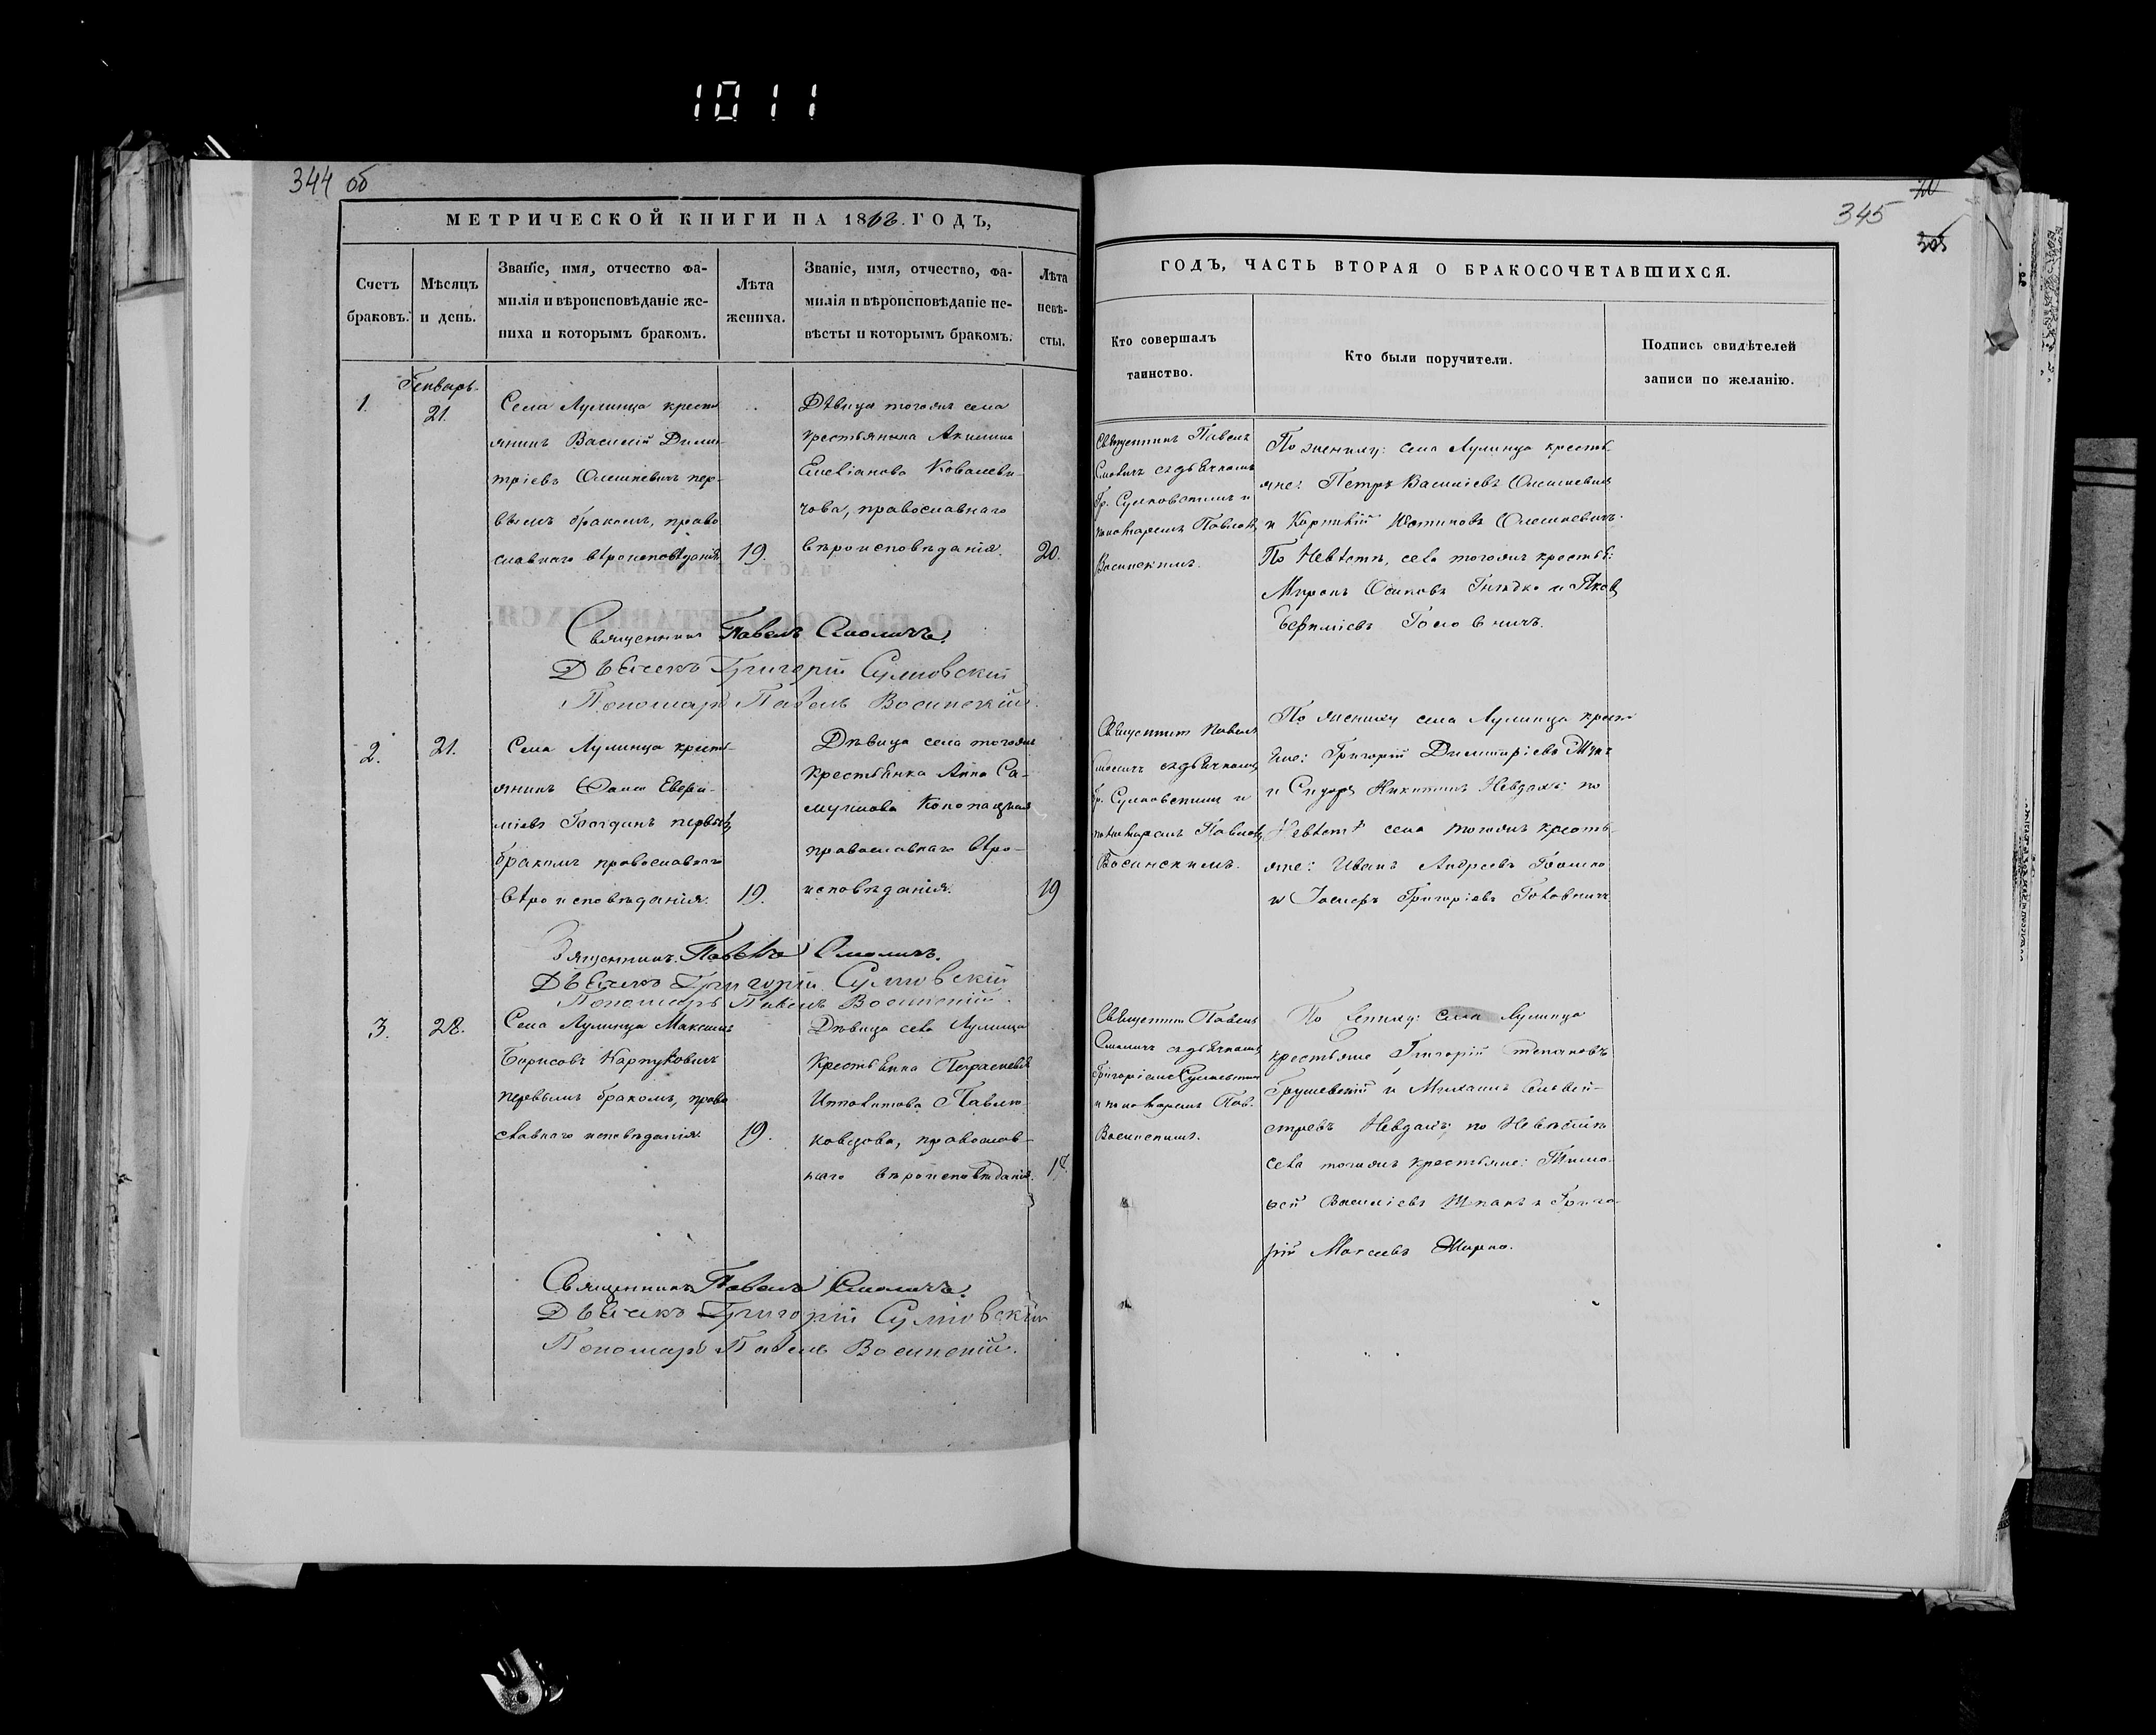 1011
344 об
МЕТРИЧЕСКОЙ КНИГИ НА 1862. ГОДЪ,
Счетъ браковъ.
Мѣсяцъ и день.
Званіе, имя, отчество фа-
милія и вѣроисповѣданіе же-
ниха и которымъ бракомъ.
Лѣта
жениха.
Званіе, имя, отчество, фа-
милія и вѣроисповѣданіе не-
вѣсты и которымъ бракомъ.
Лѣта
невѣ-
сты.
Генварь.
1.
21.
Села Лулинца кресть
янинъ Василій Дими-
тріевъ Олешкевичъ пер-
вымъ бракомъ, право
славнаго вѣроисповѣданія
19.
Дѣвица тогожъ села
крестьянка Акилина
Емеліанова Ковалеви-
чова, православнаго
вѣроисповѣданія.
20.
Священникъ Павелъ Смоличъ.
Дьячекъ Григорій Сулковскій
Пономарь Павелъ Восинскій.
2.
21.
Села Лулинца кресть-
янинъ Ѳома Евфи-
міевъ первымъ
бракомъ православнаго
вѣроисповѣданія.
19.
Дѣвица села тогожъ
крестьянка Анна Са-
муилова
православнаго вѣро-
исповѣданія.
19
Священникъ Павелъ Смоличъ.
Дьячекъ Григорій Сулковскій
Пономарь Павелъ Восинскій.
3.
28.
Села Лулинца Максимъ
Борисовъ Карпуковичъ
первымъ бракомъ, право
славнаго исповѣданія.
19.
Дѣвица села Лулинца
крестьянка Параскевія
Ипполитова Павлю-
ковцова, православ-
наго вѣроисповѣданія.
18.
Священникъ Павелъ Смоличъ.
Дьячекъ Григорій Сулковскій
Пономарь Павелъ Восинскій.
345
ГОДЪ, ЧАСТЬ ВТОРАЯ О БРАКОСОЧЕТАВШИХСЯ.
Кто совершалъ
таинство.
Кто были поручители.
Подпись свидѣтелей
записи по желанію.
Священникъ Павелъ
Смоличъ съ дьячкомъ
Гр. Сулковскимъ и
пономаремъ Павломъ
Восинскимъ.
По жениху: села Лулинца кресть-
яне: Петръ Василіевъ Олешкевичъ
и Олешкевичъ.
По Невѣстѣ, села тогожъ крестья:
Миронъ Осиповъ Гнѣдко и Яковъ
Евфиміевъ
Священникъ Павелъ
Смоличъ съ дьячкомъ
Гр. Сулковскимъ и
пономаремъ Павломъ
Восинскимъ.
По жениху села Лулинца кресть
яне: Григорій Димитріевъ
и Сидоръ Никитинъ Невдахъ; по
Невѣстѣ села тогожъ кресть-
яне: Иванъ Андреевъ
и Іосифъ Григоріевъ
Священникъ Павелъ
Смоличъ съ дьячкомъ
Григоріемъ Сулковскимъ
и пономаремъ Пав.
Восинскимъ.
По жениху: села Лулинца
крестьяне Григорій Степановъ
Грушевскій и Михаилъ Сильвей-
стровъ Невдахъ; по Невѣстѣ
села тогожъ крестьяне: Тимо-
ѳей Василіевъ Шпакъ и Григо-
рій Моисеевъ